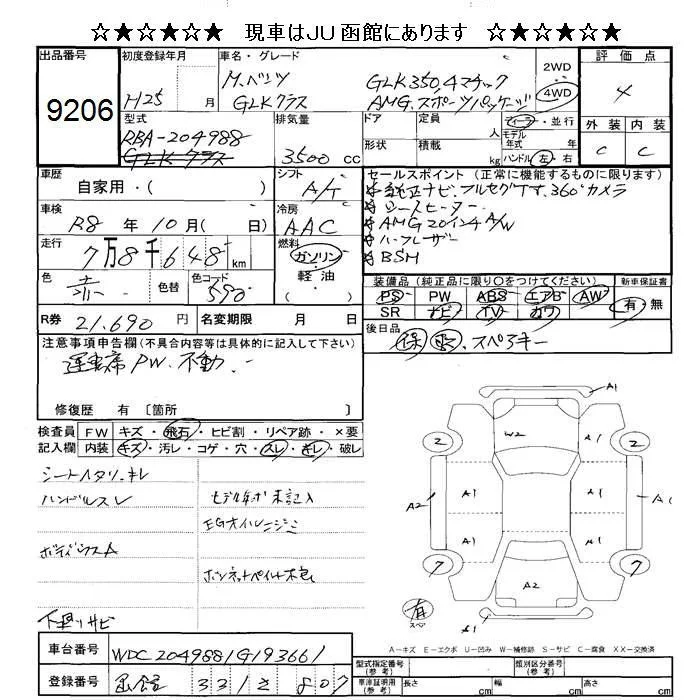 ☆★☆★☆ 現車はJU函館にあります ☆★☆★☆
出品番号 9206
初度登録年月 H25 月
車名・グレード
M.ベンツ GLK350,4マチック
GLKクラス AMG.スポーツパッケージ
2WD
4WD
評価点 4
外装 内装
C C
型式 RBA-204988
GLKクラス
排気量 3500 cc
ドア 定員 人
形状 積載 kg
ディーラー・並行
モデル年式 年式
ハンドル 左・右
車歴 自家用・( )
シフト A/T
車検 R8年 10月( 日)
冷房 AAC
走行 7万8千648 km
燃料 ガソリン
軽油
( )
色 赤 色替
色コード 590
R券 21.690 円
名変期限 月 日
セールスポイント (正常に機能するものに限ります)
純正ナビ.フルセグTV.360°カメラ
シートヒーター
AMG20インチA/W
BSM
装備品 (純正品に限り○をつけてください)
PS PW ABS エアB AW
SR ナビ TV カワ
新車保証書
有・無
後日品
保 取.スペアキー
注意事項申告欄(不具合内容等は具体的に記入して下さい)
運転席PW.不動.
修復歴 有〔箇所 〕
検査員 FW キズ・飛石・ヒビ割・リペア跡・×要
記入欄 内装 キズ・汚レ・コゲ・穴・スレ・キレ・破レ
シートヘタリ.キレ
ハンドルスレ
モデル年式未記入
EGオイルニジミ
ボディウスA
ボンネットペイント不良
下廻りサビ
A1
W2
2 A1 A1 2
A2 A1 A1 A1
A1 A1
7 7
A2
有
スペア
A1
A−キズ E−エクボ U−凹み W−補修跡 S−サビ C−腐食 XX−交換済
車台番号 WDC2049881G193661
登録番号 函館 331 そ 807
型式指定番号(参考)
類別区分番号(参考)
車庫証明用(参考) 長さ cm 幅 cm 高さ cm